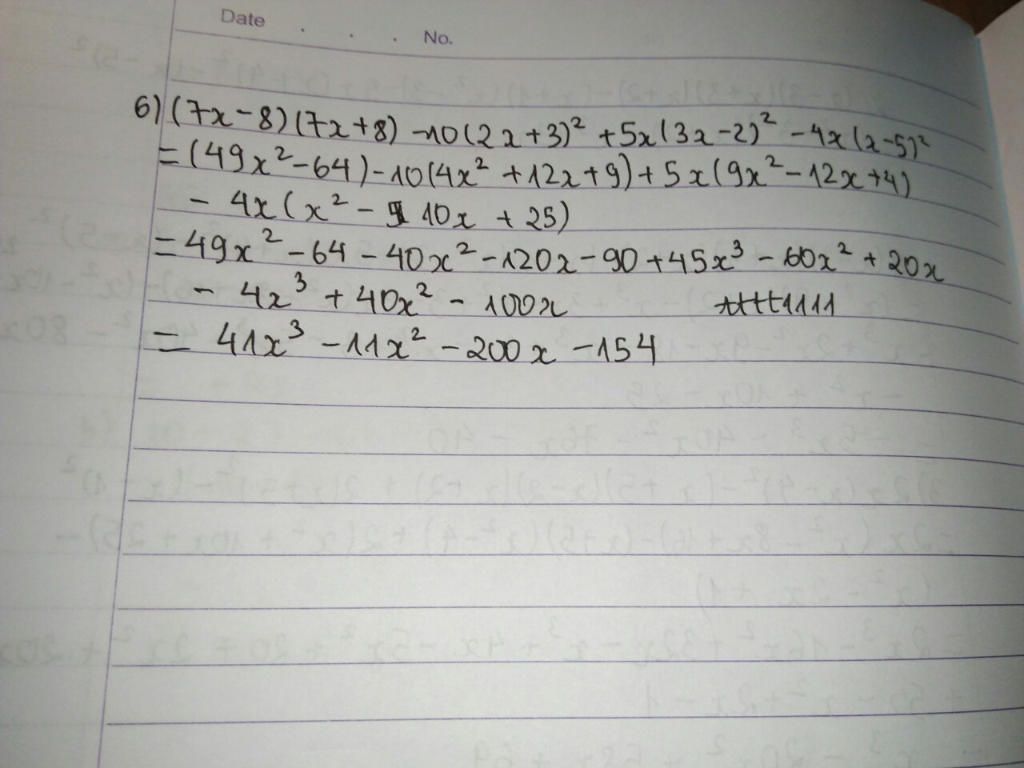 Date . . . No.
6) (7x-8)(7x+8) -10(2x+3)² +5x(3x-2)² -4x(x-5)²
=(49x²-64)-10(4x²+12x+9)+5x(9x²-12x+4)
- 4x(x² - 10x + 25)
=49x²-64-40x²-120x-90+45x³-60x²+20x
- 4x³ + 40x² - 100x
= 41x³ -11x² -200x -154